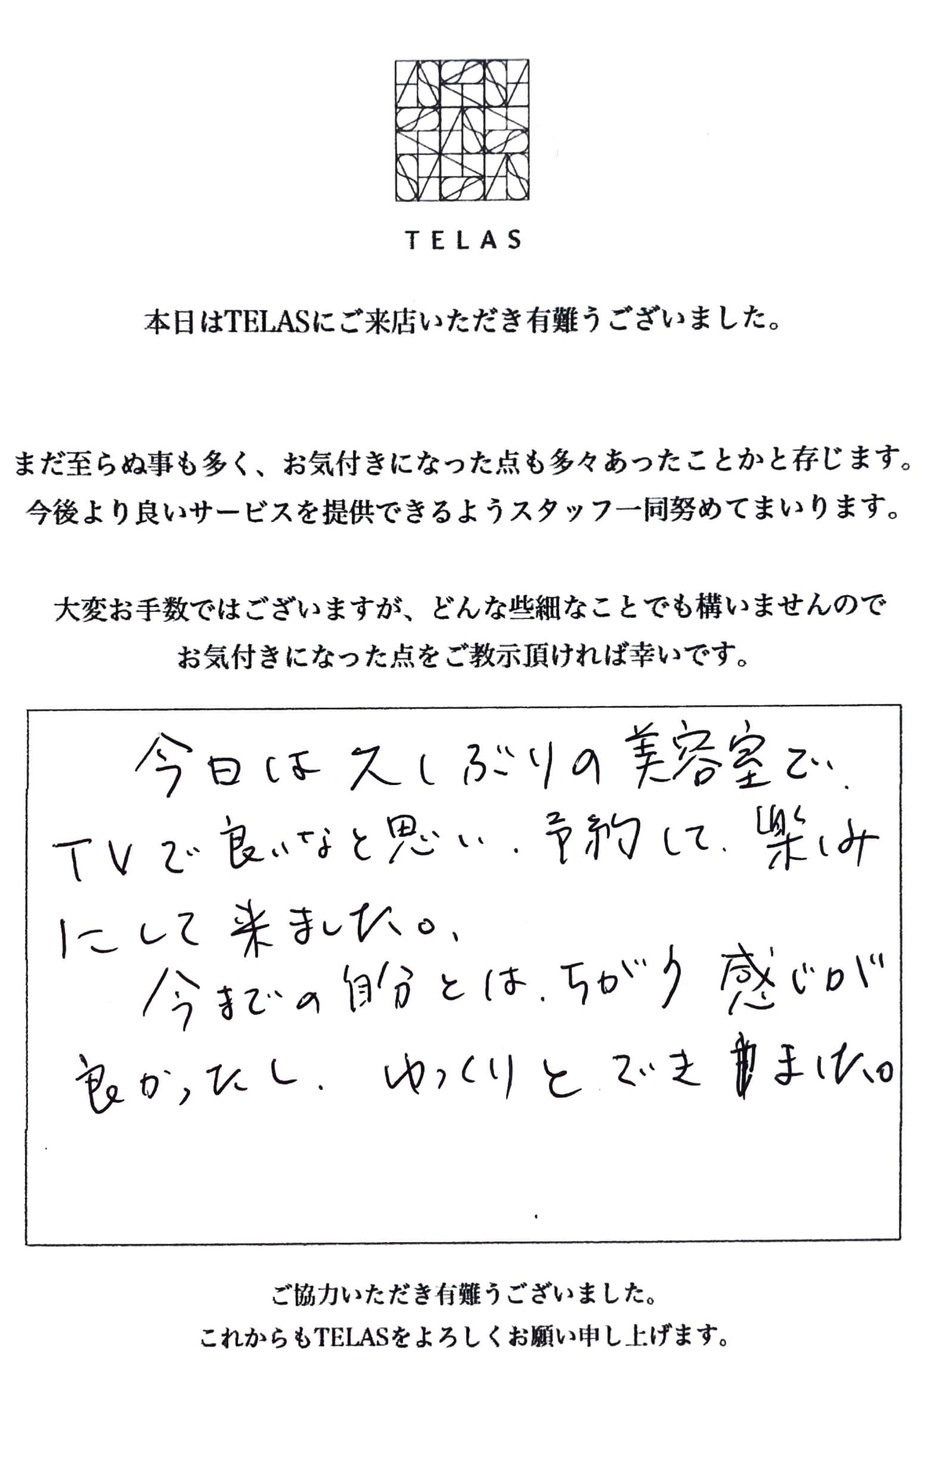 TELAS
本日はTELASにご来店いただき有難うございました。
まだ至らぬ事も多く、お気付きになった点も多々あったことかと存じます。
今後より良いサービスを提供できるようスタッフ一同努めてまいります。
大変お手数ではございますが、どんな些細なことでも構いませんので
お気付きになった点をご教示頂ければ幸いです。
今日は久しぶりの美容室で、
TVで良いなと思い、予約して、楽しみ
にして来ました。
今までの自分とは、ちがう感じが
良かったし、ゆっくりとできました。
ご協力いただき有難うございました。
これからもTELASをよろしくお願い申し上げます。